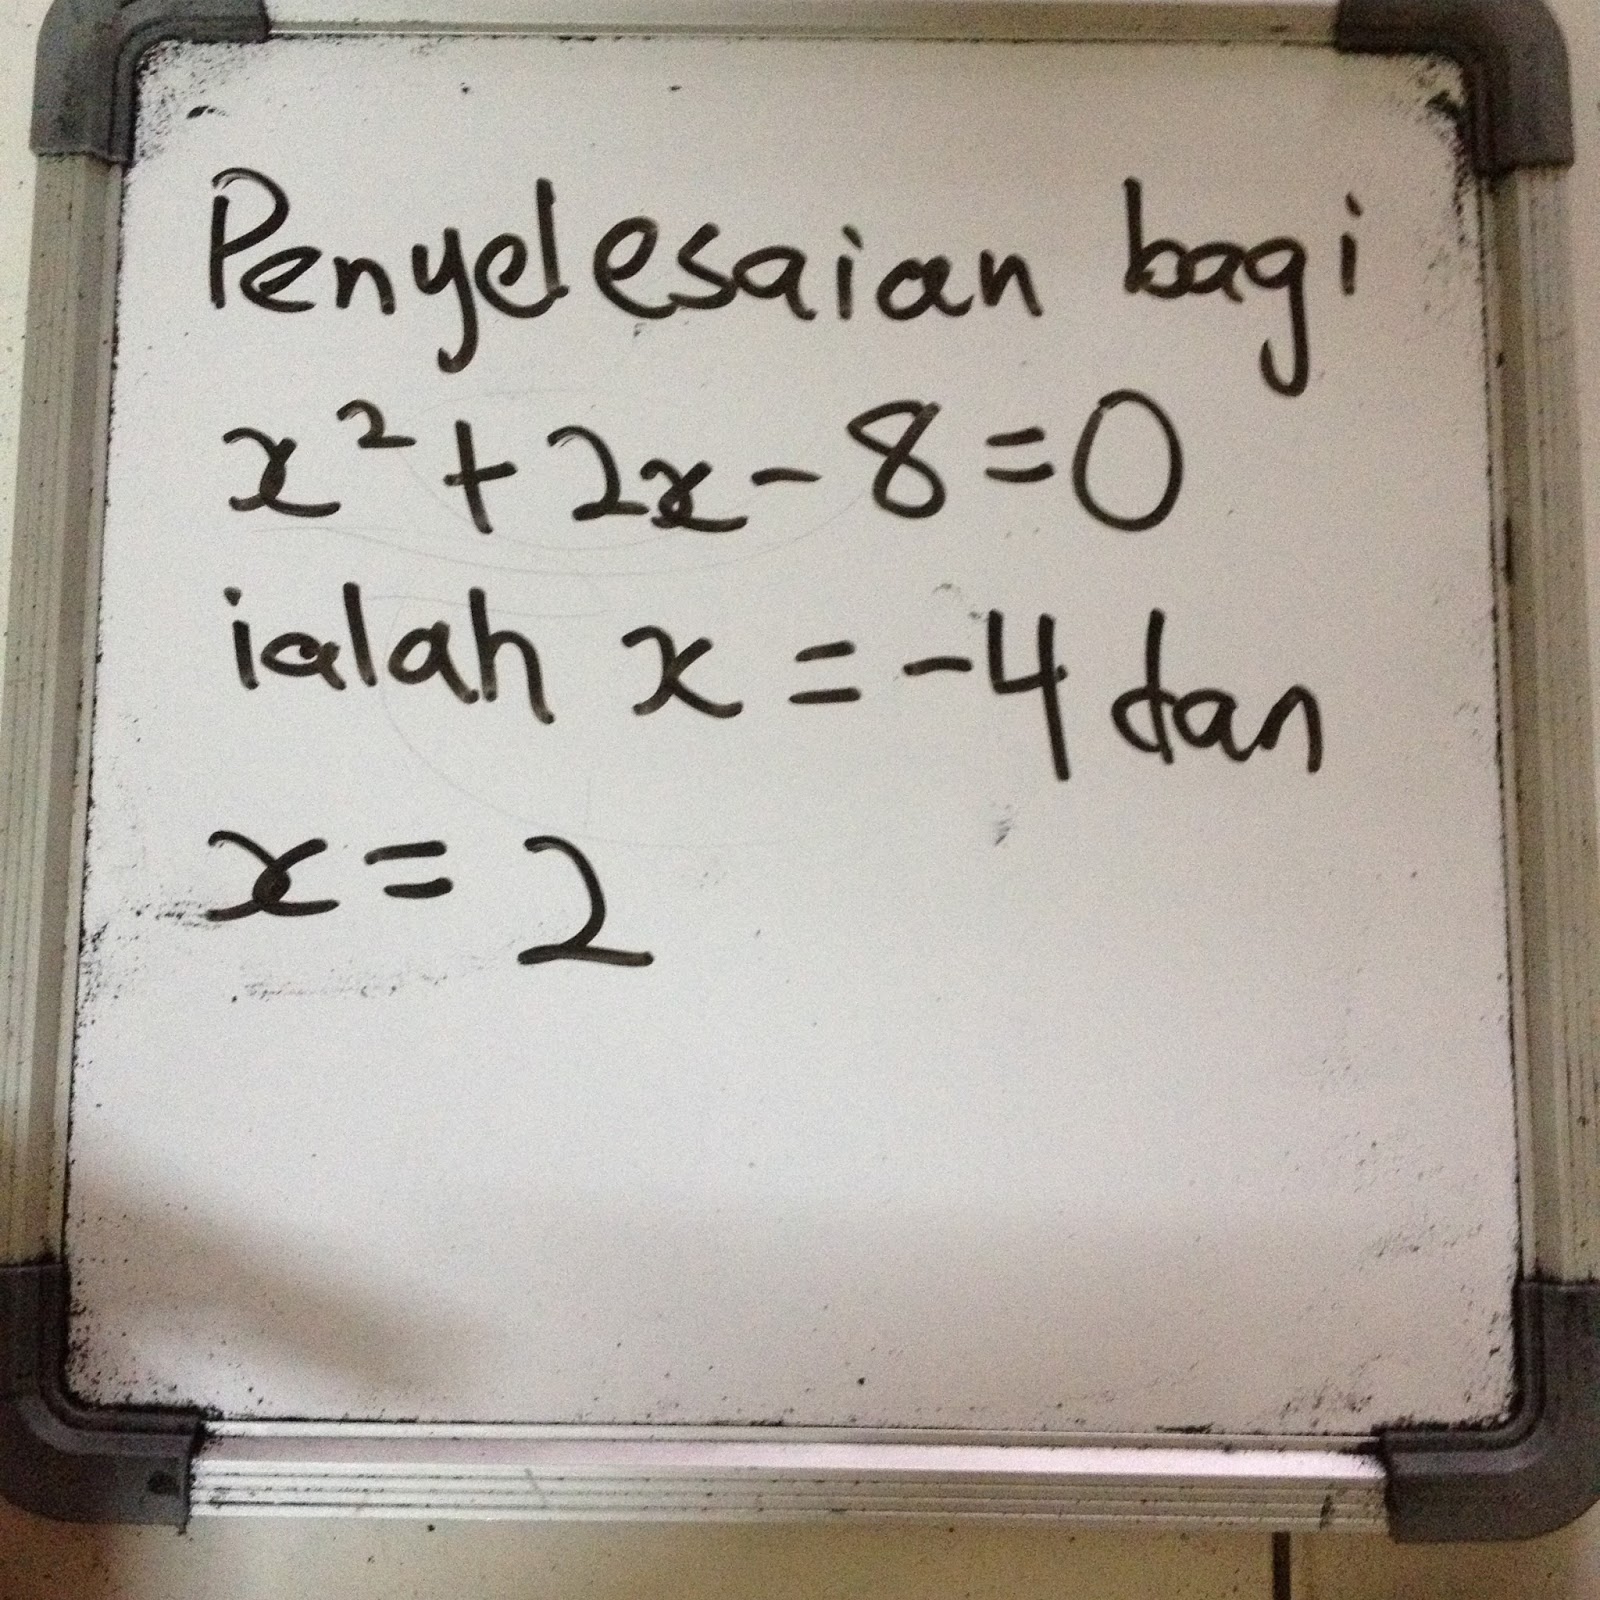 Penyelesaian bagi
x² + 2x - 8 = 0
ialah x = -4 dan
x = 2